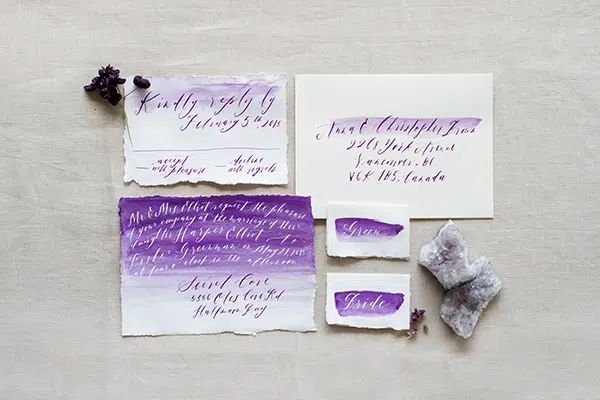 Kindly reply by
February 5th, 2015
accept with pleasure
decline with regrets
Anna & Christopher
York
Vancouver, BC
V6K 1B5, Canada
Mr & Mrs Elliot request the pleasure
of your company at the marriage of their
daughter Harper Elliot to
on May 21, 2015
at four o'clock in the afternoon
Secret Cove
Cove Rd
Halfmoon Bay
Groom
Bride